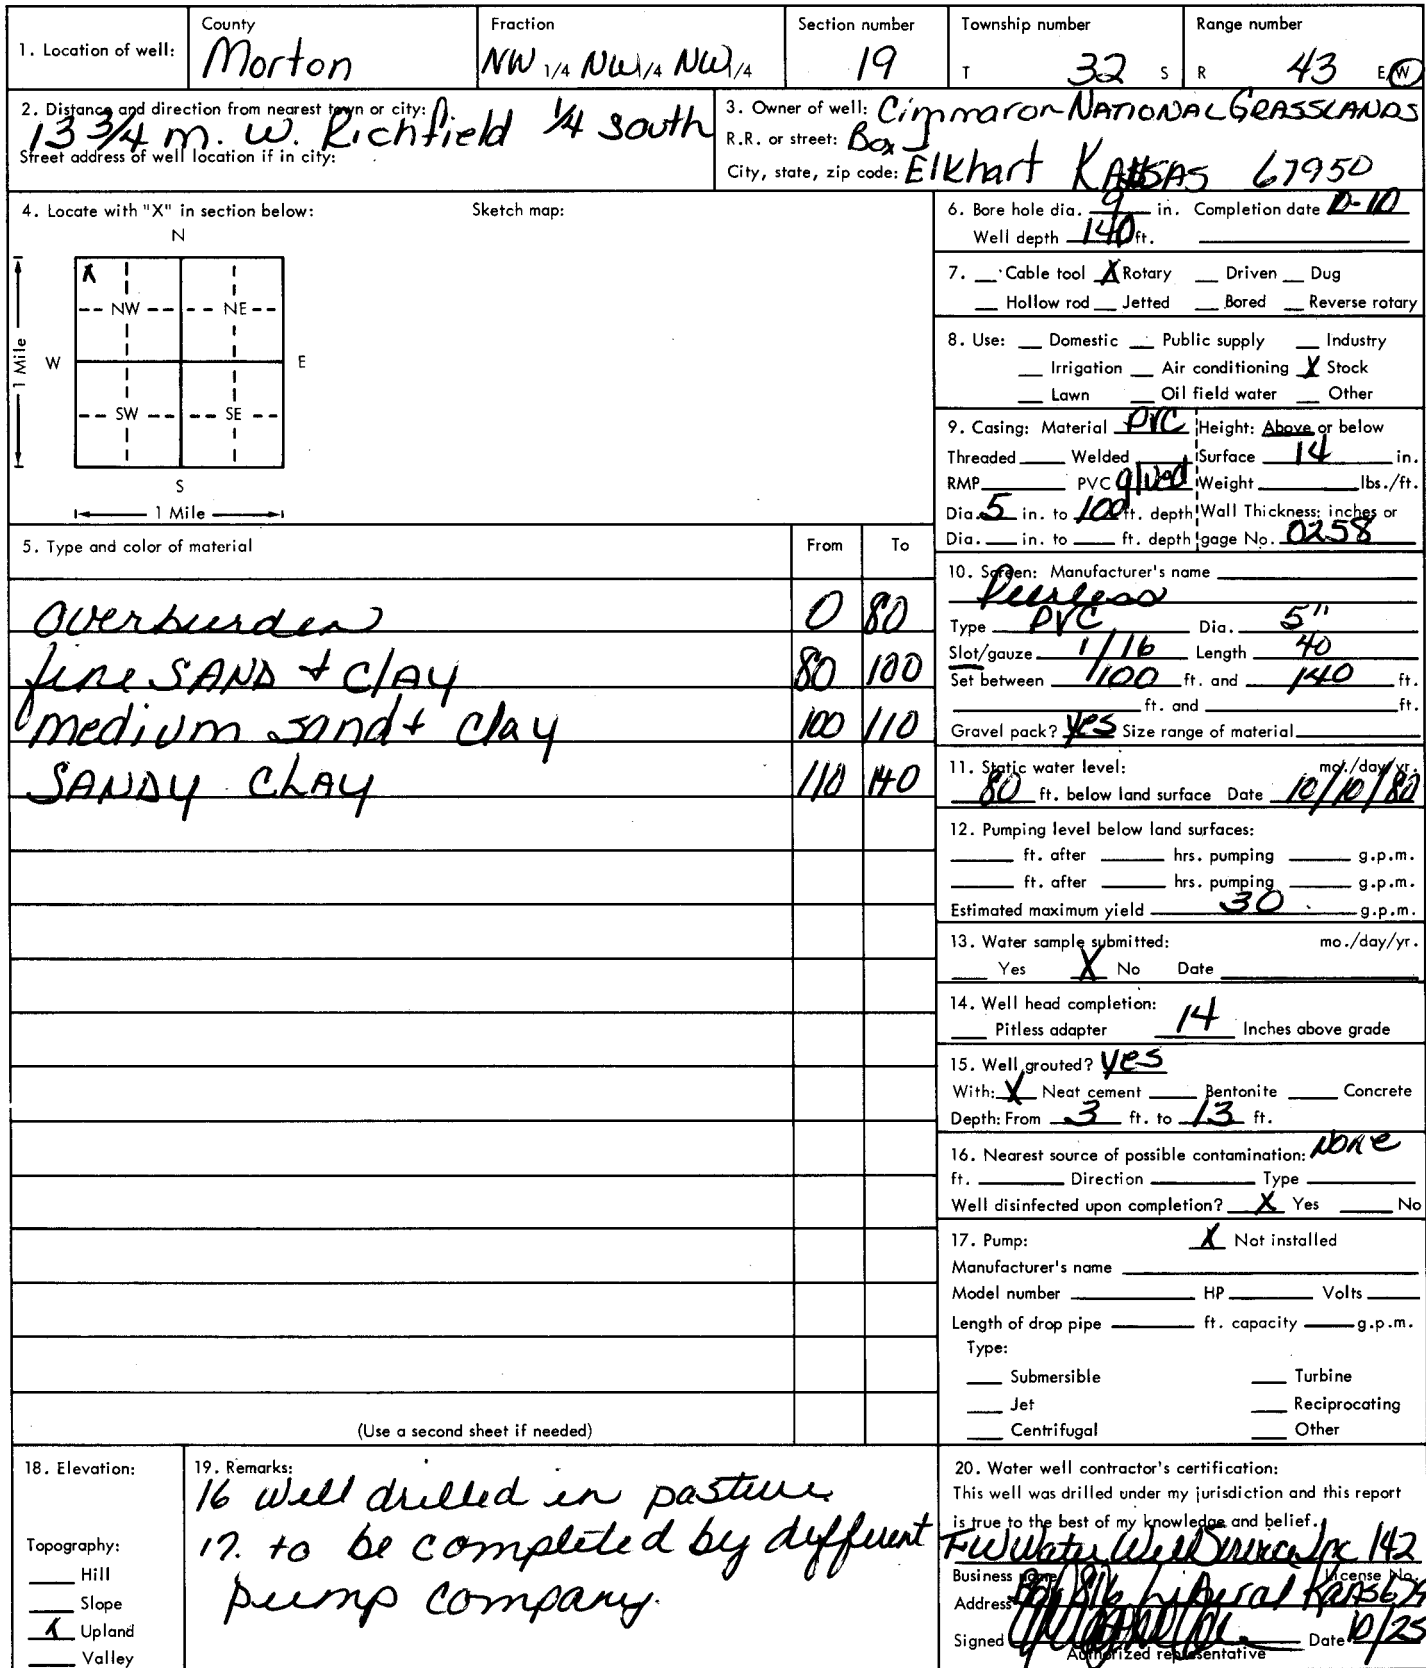 1. Location of well: County Morton Fraction NW 1/4 NW 1/4 NW 1/4 Section number 19 Township number T 32 S Range number R 43 E/W
2. Distance and direction from nearest town or city:
13 3/4 m. W. Richfield 1/4 South
Street address of well location if in city:
3. Owner of well: Cimmaron NATIONAL GRASSLANDS
R.R. or street: Box J
City, state, zip code: Elkhart KANSAS 67950
4. Locate with "X" in section below: Sketch map:
N
X
NW NE
W E
1 Mile
SW SE
S
1 Mile
5. Type and color of material From To
overburden 0 80
fine SAND + CLAY 80 100
medium sand + clay 100 110
SANDY CLAY 110 140
(Use a second sheet if needed)
6. Bore hole dia. 9 in. Completion date 10-10
Well depth 140 ft.
7. Cable tool X Rotary Driven Dug
Hollow rod Jetted Bored Reverse rotary
8. Use: Domestic Public supply Industry
Irrigation Air conditioning X Stock
Lawn Oil field water Other
9. Casing: Material PVC Height: Above or below
Threaded Welded Surface 14 in.
RMP PVC glued Weight lbs./ft.
Dia. 5 in. to 100 ft. depth Wall Thickness: inches or
Dia. in. to ft. depth gage No. 0258
10. Screen: Manufacturer's name
Peerless
Type PVC Dia. 5"
Slot/gauze 1/16 Length 40
Set between 100 ft. and 140 ft.
ft. and ft.
Gravel pack? yes Size range of material
11. Static water level: mo./day/yr.
80 ft. below land surface Date 10/10/80
12. Pumping level below land surfaces:
ft. after hrs. pumping g.p.m.
ft. after hrs. pumping g.p.m.
Estimated maximum yield 30 g.p.m.
13. Water sample submitted: mo./day/yr.
Yes X No Date
14. Well head completion:
Pitless adapter 14 Inches above grade
15. Well grouted? yes
With: X Neat cement Bentonite Concrete
Depth: From 3 ft. to 13 ft.
16. Nearest source of possible contamination: NONE
ft. Direction Type
Well disinfected upon completion? X Yes No
17. Pump: X Not installed
Manufacturer's name
Model number HP Volts
Length of drop pipe ft. capacity g.p.m.
Type:
Submersible Turbine
Jet Reciprocating
Centrifugal Other
18. Elevation:
Topography:
Hill
Slope
X Upland
Valley
19. Remarks:
16 Well drilled in pasture
17. to be completed by different
pump company.
20. Water well contractor's certification:
This well was drilled under my jurisdiction and this report
is true to the best of my knowledge and belief.
FW Water Well Service Inc 142
Business name License No.
Address Box 816 Liberal Kans
Signed Date 10/25
Authorized representative